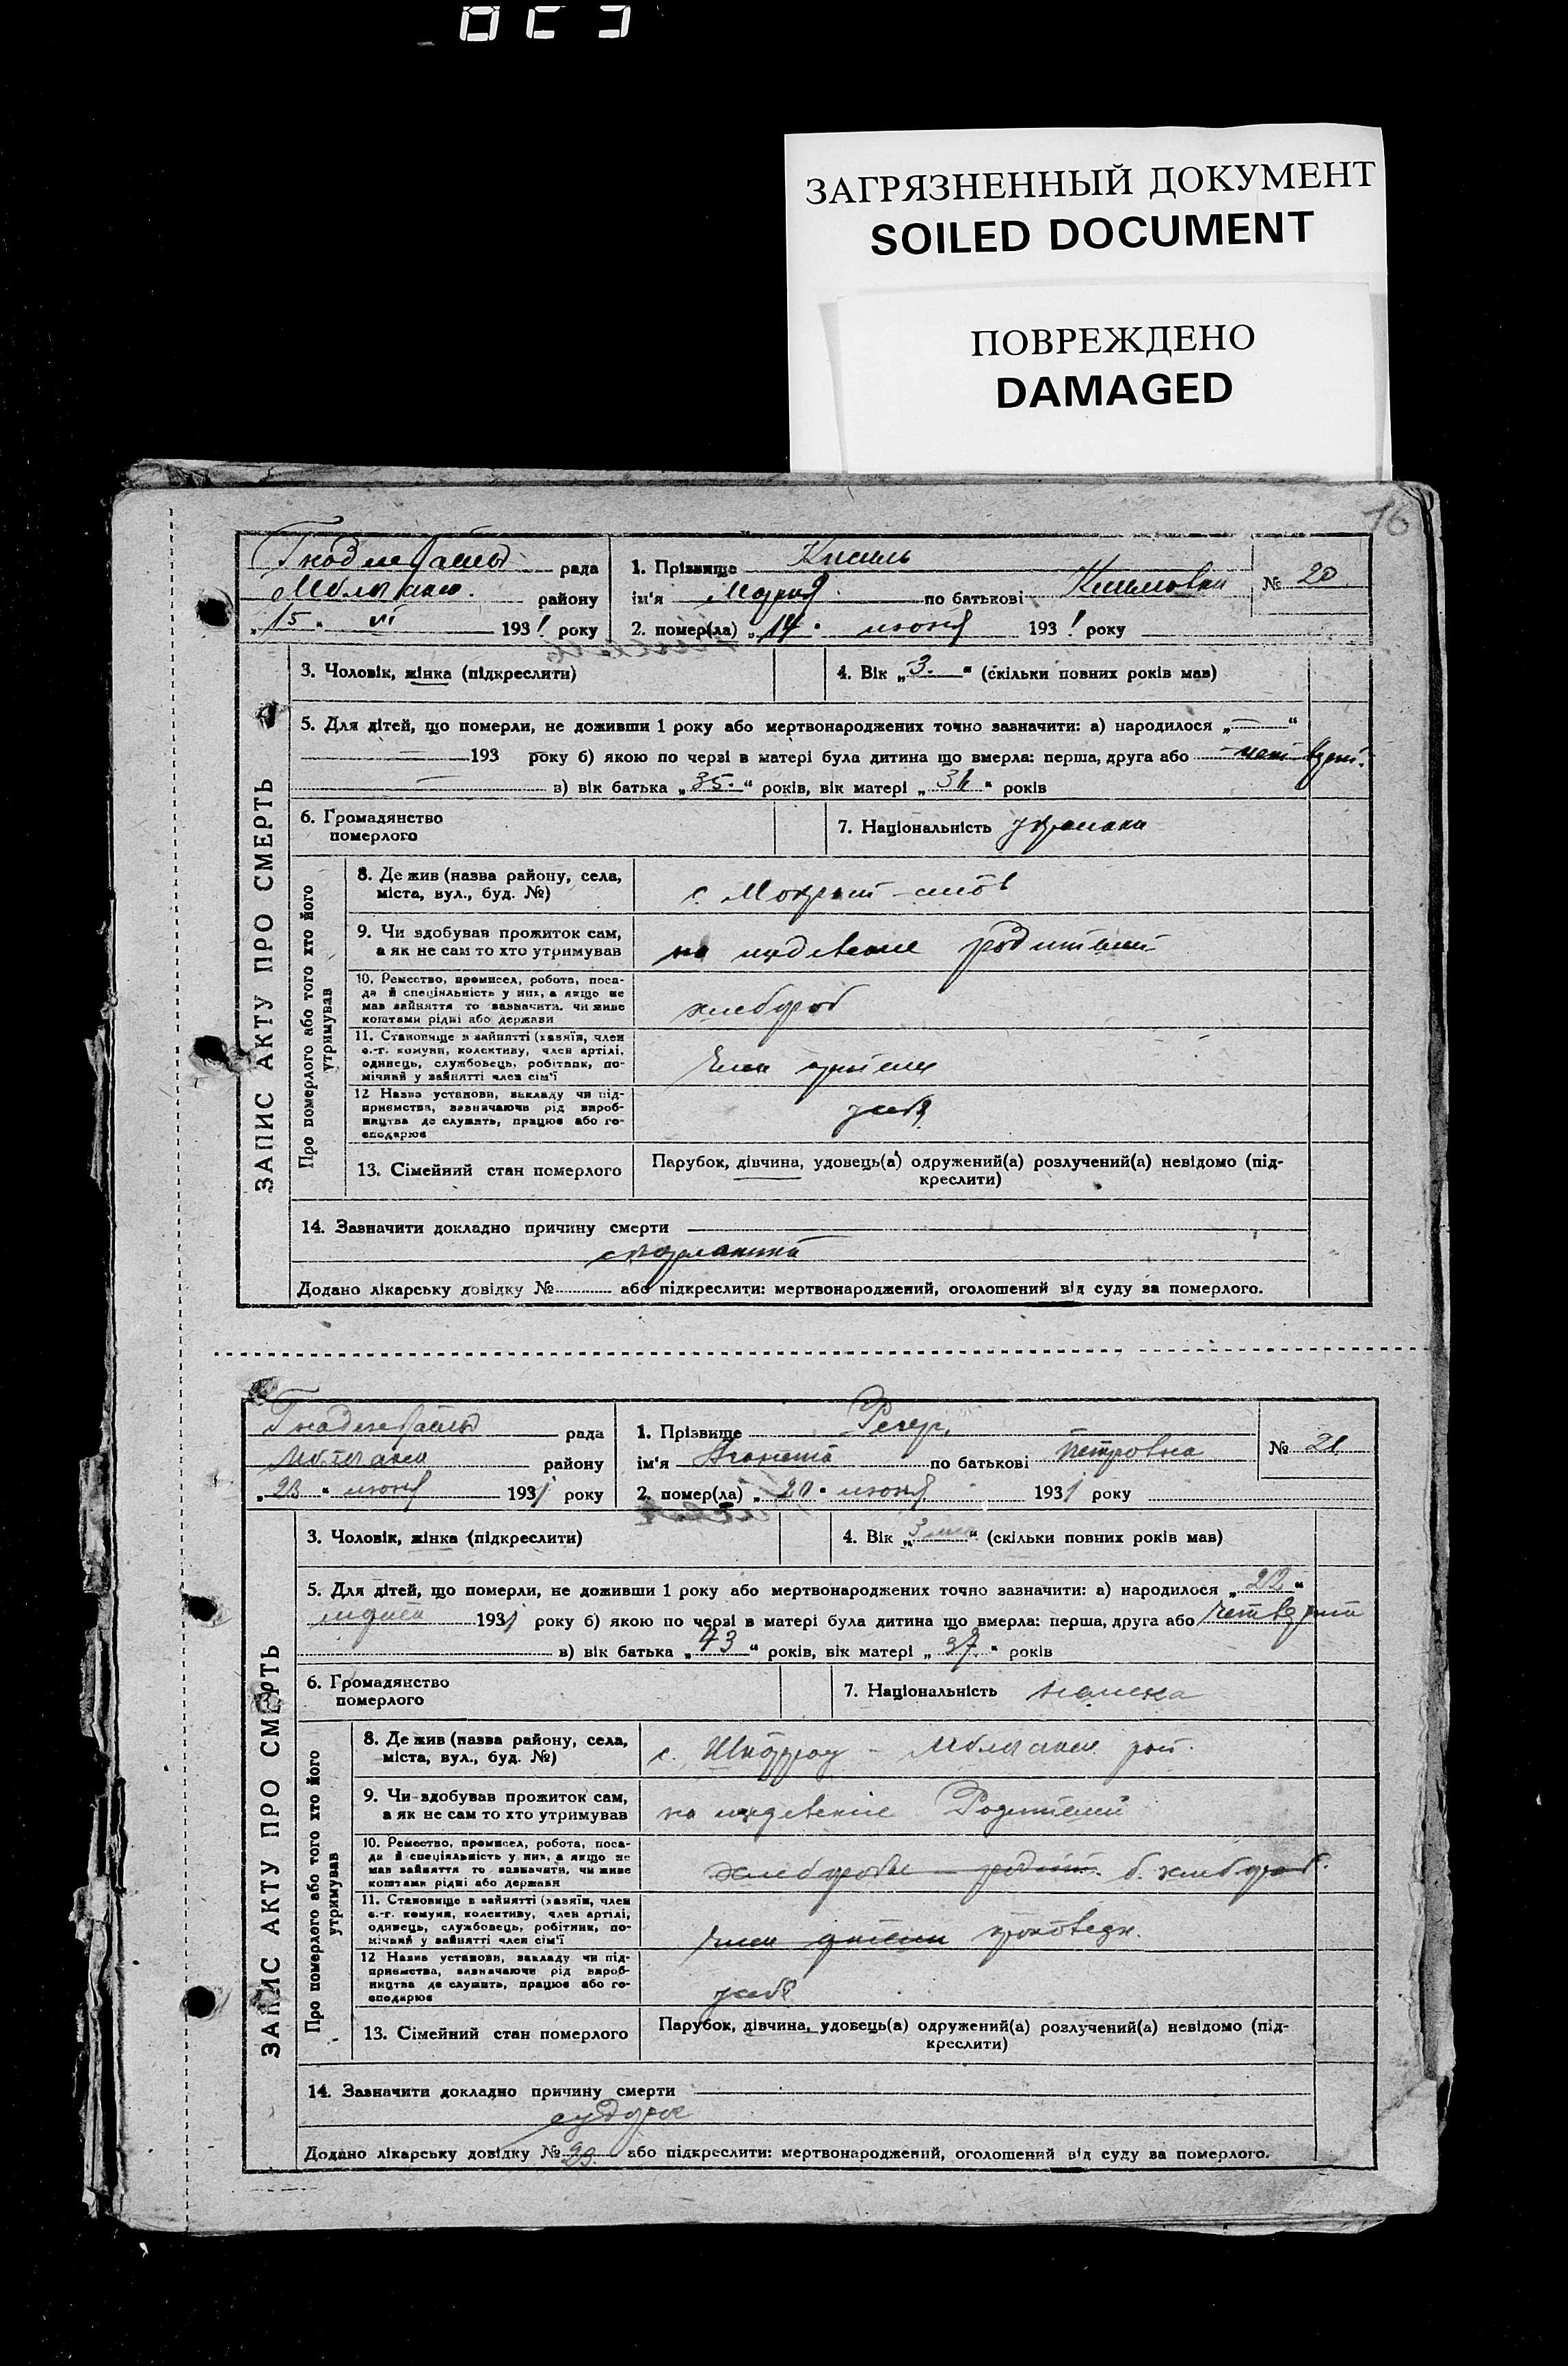 ЗАГРЯЗНЕННЫЙ ДОКУМЕНТ
SOILED DOCUMENT
ПОВРЕЖДЕНО
DAMAGED
16
рада
району
"15" VI 1931 року
1. Прізвище
ім'я Мария по батькові
2. помер(ла) "14" июня 1931 року
№ 20
ЗАПИС АКТУ ПРО СМЕРТЬ
3. Чоловік, жінка (підкреслити)
4. Вік „3." (скільки повних років мав)
5. Для дітей, що померли, не доживши 1 року або мертвонароджених точно зазначити: а) народилося „—"
— 193 року б) якою по черзі в матері була дитина що вмерла: перша, друга або
— в) вік батька „35." років, вік матері „ " років
6. Громадянство
померлого
7. Національність
Про померлого або того хто його
утримував
8. Де жив (назва району, села,
міста, вул., буд. №)
с.
9. Чи здобував прожиток сам,
а як не сам то хто утримував
на иждевение родителей
10. Ремество, промисел, робота, поса-
да й спеціяльність у них, а якщо не
мав зайняття то зазначити, чи живе
коштами рідні або держави
хлебороб
11. Становище в зайнятті (хазяїн, член
с.-г. комуни, колективу, член артілі,
одинець, службовець, робітник, по-
мічний у зайнятті член сім'ї
член артели
12 Назва установи, закладу чи під-
приємства, зазначаючи рід вироб-
ництва де служить, працює або го-
сподарює
у себя
13. Сімейний стан померлого
Парубок, дівчина, удовець(а) одружений(а) розлучений(а) невідомо (під-
креслити)
14. Зазначити докладно причину смерти
скарлатина
Додано лікарську довідку № або підкреслити: мертвонароджений, оголошений від суду за померлого.
рада
району
" " июня 1931 року
1. Прізвище
ім'я по батькові Петровна
2. помер(ла) „20" июня 1931 року
№ 21
ЗАПИС АКТУ ПРО СМЕРТЬ
3. Чоловік, жінка (підкреслити)
4. Вік „3 " (скільки повних років мав)
5. Для дітей, що померли, не доживши 1 року або мертвонароджених точно зазначити: а) народилося „22"
1931 року б) якою по черзі в матері була дитина що вмерла: перша, друга або
в) вік батька „43" років, вік матері „37." років
6. Громадянство
померлого
7. Національність немка
Про померлого або того хто його
утримував
8. Де жив (назва району, села,
міста, вул., буд. №)
с.
9. Чи здобував прожиток сам,
а як не сам то хто утримував
на иждевение Родителей
10. Ремество, промисел, робота, поса-
да й спеціяльність у них, а якщо не
мав зайняття то зазначити, чи живе
коштами рідні або держави
б. хлебороб.
11. Становище в зайнятті (хазяїн, член
с.-г. комуни, колективу, член артілі,
одинець, службовець, робітник, по-
мічний у зайнятті член сім'ї
член артели
12 Назва установи, закладу чи під-
приємства, зазначаючи рід вироб-
ництва де служить, працює або го-
сподарює
у себя
13. Сімейний стан померлого
Парубок, дівчина, удовець(а) одружений(а) розлучений(а) невідомо (під-
креслити)
14. Зазначити докладно причину смерти
судорог
Додано лікарську довідку № або підкреслити: мертвонароджений, оголошений від суду за померлого.